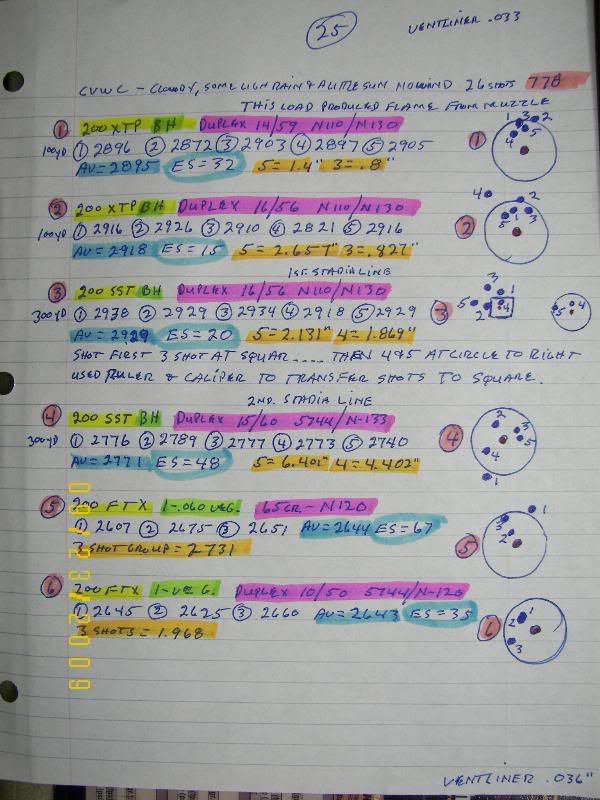 25
VENTLINER .033
CVWC - CLOUDY, SOME LIGH RAIN & A LITTLE SUN NO WIND 26 SHOTS 778
THIS LOAD PRODUCED FLAME FROM MUZZLE
1 200 XTP BH DUPLEX 14/59 N110/N130
100yD ① 2896 ② 2872 ③ 2903 ④ 2897 ⑤ 2905
AV=2895 ES=32 5=1.4" 3=.8"
1
1 3 2 5 4
2 200 XTP BH DUPLEX 16/56 N110/N130
100yD ① 2916 ② 2926 ③ 2910 ④ 2821 ⑤ 2916
AV=2918 ES=15 5=2.657" 3=.827"
2
4 2 5 1 3
1ST. STADIA LINE
3 200 SST BH DUPLEX 16/56 N110/N130
300yD ① 2938 ② 2929 ③ 2934 ④ 2918 ⑤ 2929
AV=2929 ES=20 5=2.131" 4=1.869"
3
3 1 5 2 4
5 4
SHOT FIRST 3 SHOT AT SQUAR..... THEN 4&5 AT CIRCLE TO RIGHT
USED RULER & CALIPER TO TRANSFER SHOTS TO SQUARE.
2ND. STADIA LINE
4 200 SST BH DUPLEX 15/60 5744/N-133
300yD ① 2776 ② 2789 ③ 2777 ④ 2773 ⑤ 2740
AV=2771 ES=48 5=6.401" 4=4.402"
4
2 3 5 4 1
5 200 FTX 1-.060 VEG. 65GR-N120
① 2607 ② 2675 ③ 2651 AV=2644 ES=67
3 SHOT GROUP = 2731
5
1 3 2
6 200 FTX 1-VEG. DUPLEX 10/50 5744/N-120
① 2645 ② 2625 ③ 2660 AV=2643 ES=35
3 SHOTS = 1.968
6
1 2 3
VENTLINER .036"